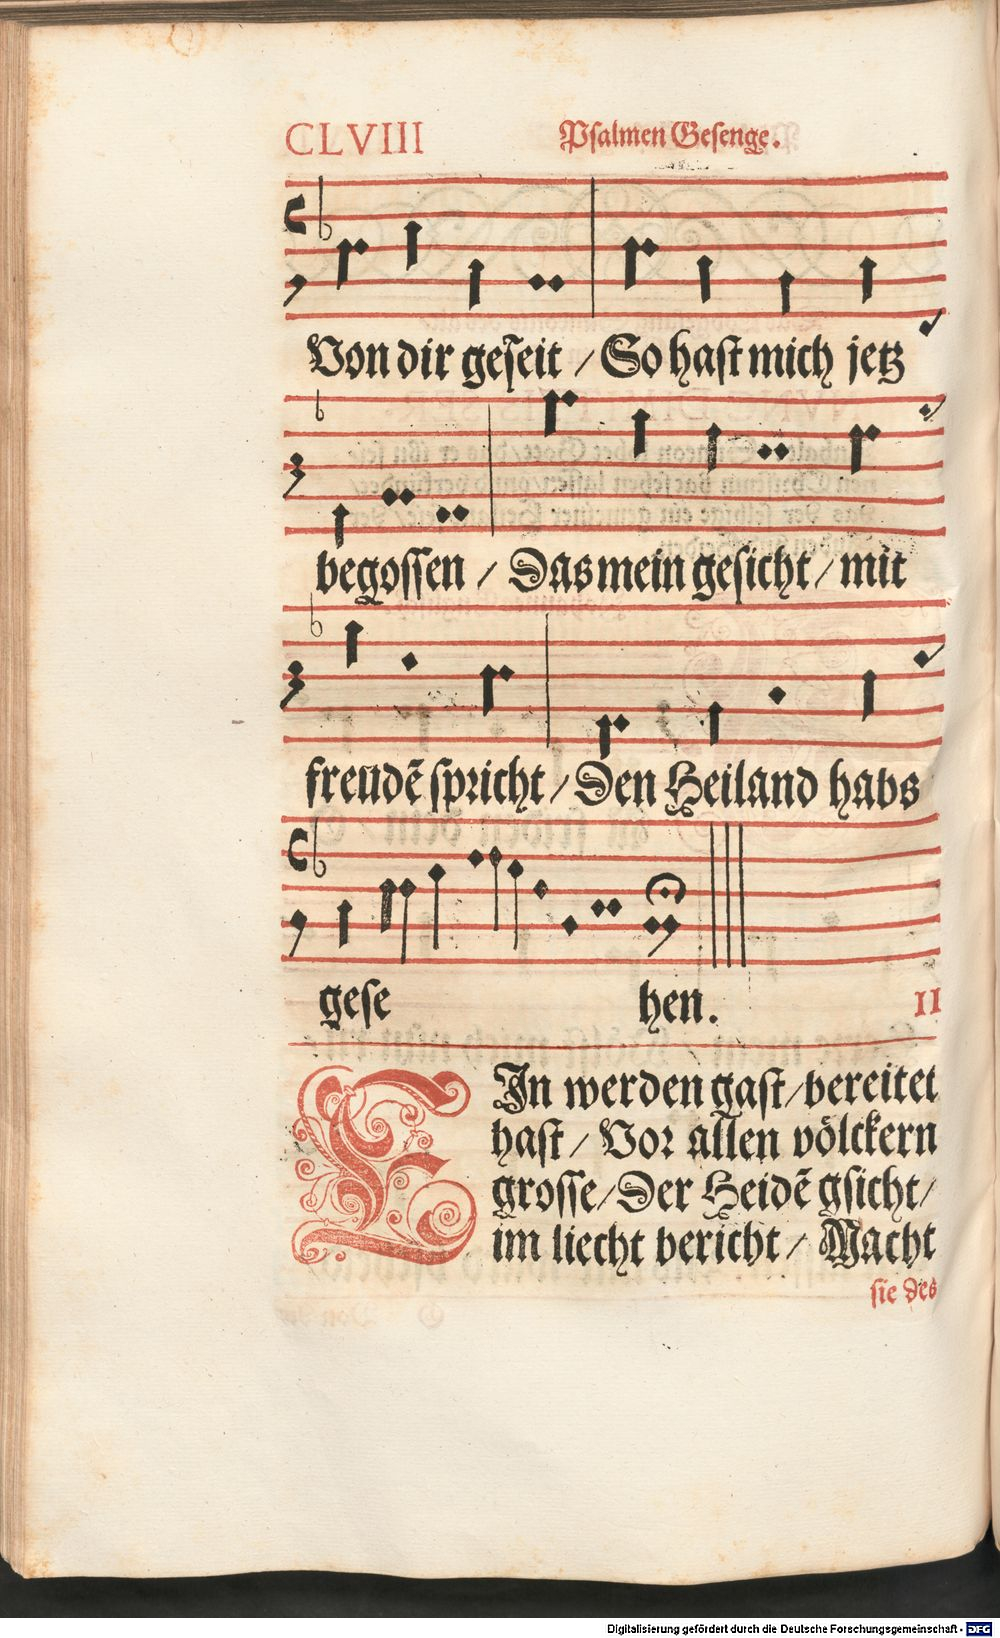 CLVIII
Psalmen Gesenge.
Von dir geseit / So hast mich jetz
begossen / Das mein gesicht / mit
freudē spricht / Den Heiland habs
gese hen.
II
EJn werden gast / bereitet
hast / Vor allen völckern
grosse / Der Heidē gsicht /
im liecht bericht / Macht
sie des
Digitalisierung gefördert durch die Deutsche Forschungsgemeinschaft - DFG